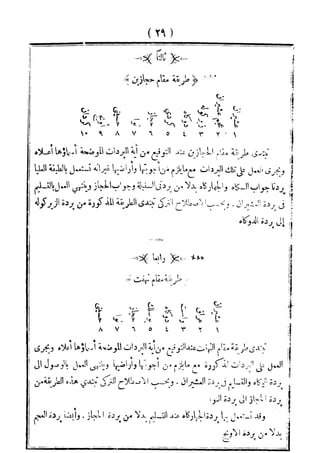 ( ٢٩ )
ثالثاً
طريقة مقام حجازين
عشيران
١ ٢ ٣ ٤ ٥ ٦ ٧ ٨ ٩ ١٠
تبتدى طريقة مقام الحجازين عند التوقيع من أية البردات الموضحة أسماؤها أعلاه
ويجرى العمل على تلك البردات مع مايلزم من أجوبتها وأراضيها غير أنه تستعمل بالطبقة العليا
بردتا جواب السكاه والجهاركاه بدلا من بردتى السنبلة وجواب الحجاز وينتهى العمل بالتسليم
فى بردة العشيران . وبحسب الاصطلاح التركى تبتدى الطريقة المذكورة من بردة الزيركوله
إلى بردة الدوكاه
رابعاً
طريقة مقام نهفت
١ ٢ ٣ ٤ ٥ ٦ ٧ ٨
تبتدى طريقة مقام النهفت عند التوقيع من أية البردات الموضحة أسماؤها أعلاه ويجرى
العمل على البردات المذكورة مع مايلزم من أجوبتها وأراضيها وينتهى العمل بالوصول الى
بردة اليكاه والتسليم فى بردة العشيران . وبحسب الاصطلاح التركى تبتدى هذه الطريقة من
بردة الحجاز الى بردة النوا
وقد تستعمل بها بردة الجهاركاه عند التسليم بدلا من بردة الحجاز . وأيضا بردة العجم
بدلا من بردة الاوج